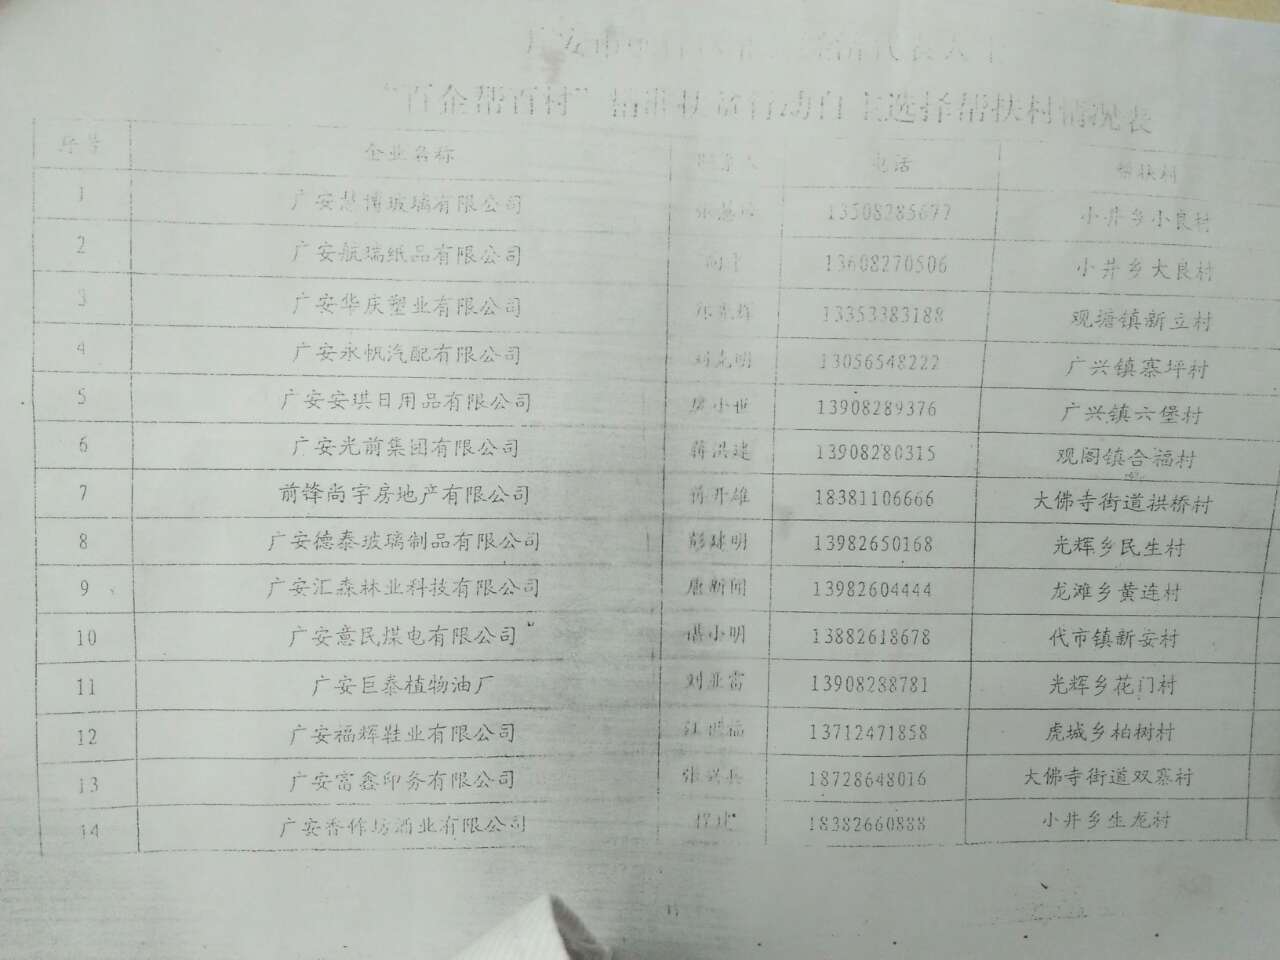 "百企帮百村"精准扶贫行动自主选择帮扶村情况表
序号 企业名称 电话 帮扶村
1 广安慧博玻璃有限公司 13508285677 小井乡小良村
2 广安航瑞纸品有限公司 13608270506 小井乡大良村
3 广安华庆塑业有限公司 13353383188 观塘镇新立村
4 广安永帆汽配有限公司 刘克明 13056548222 广兴镇寨坪村
5 广安安琪日用品有限公司 13908289376 广兴镇六堡村
6 广安光前集团有限公司 蒋洪建 13908280315 观阁镇合福村
7 前锋尚宇房地产有限公司 蒋开雄 18381106666 大佛寺街道拱桥村
8 广安德泰玻璃制品有限公司 彭建明 13982650168 光辉乡民生村
9 广安汇森林业科技有限公司 唐新闻 13982604444 龙滩乡黄连村
10 广安意民煤电有限公司 谌小明 13882618678 代市镇新安村
11 广安巨泰植物油厂 刘业富 13908288781 光辉乡花门村
12 广安福辉鞋业有限公司 13712471858 虎城乡柏树村
13 广安富鑫印务有限公司 张兴兵 18728648016 大佛寺街道双寨村
14 广安香作坊酒业有限公司 18382660888 小井乡生龙村